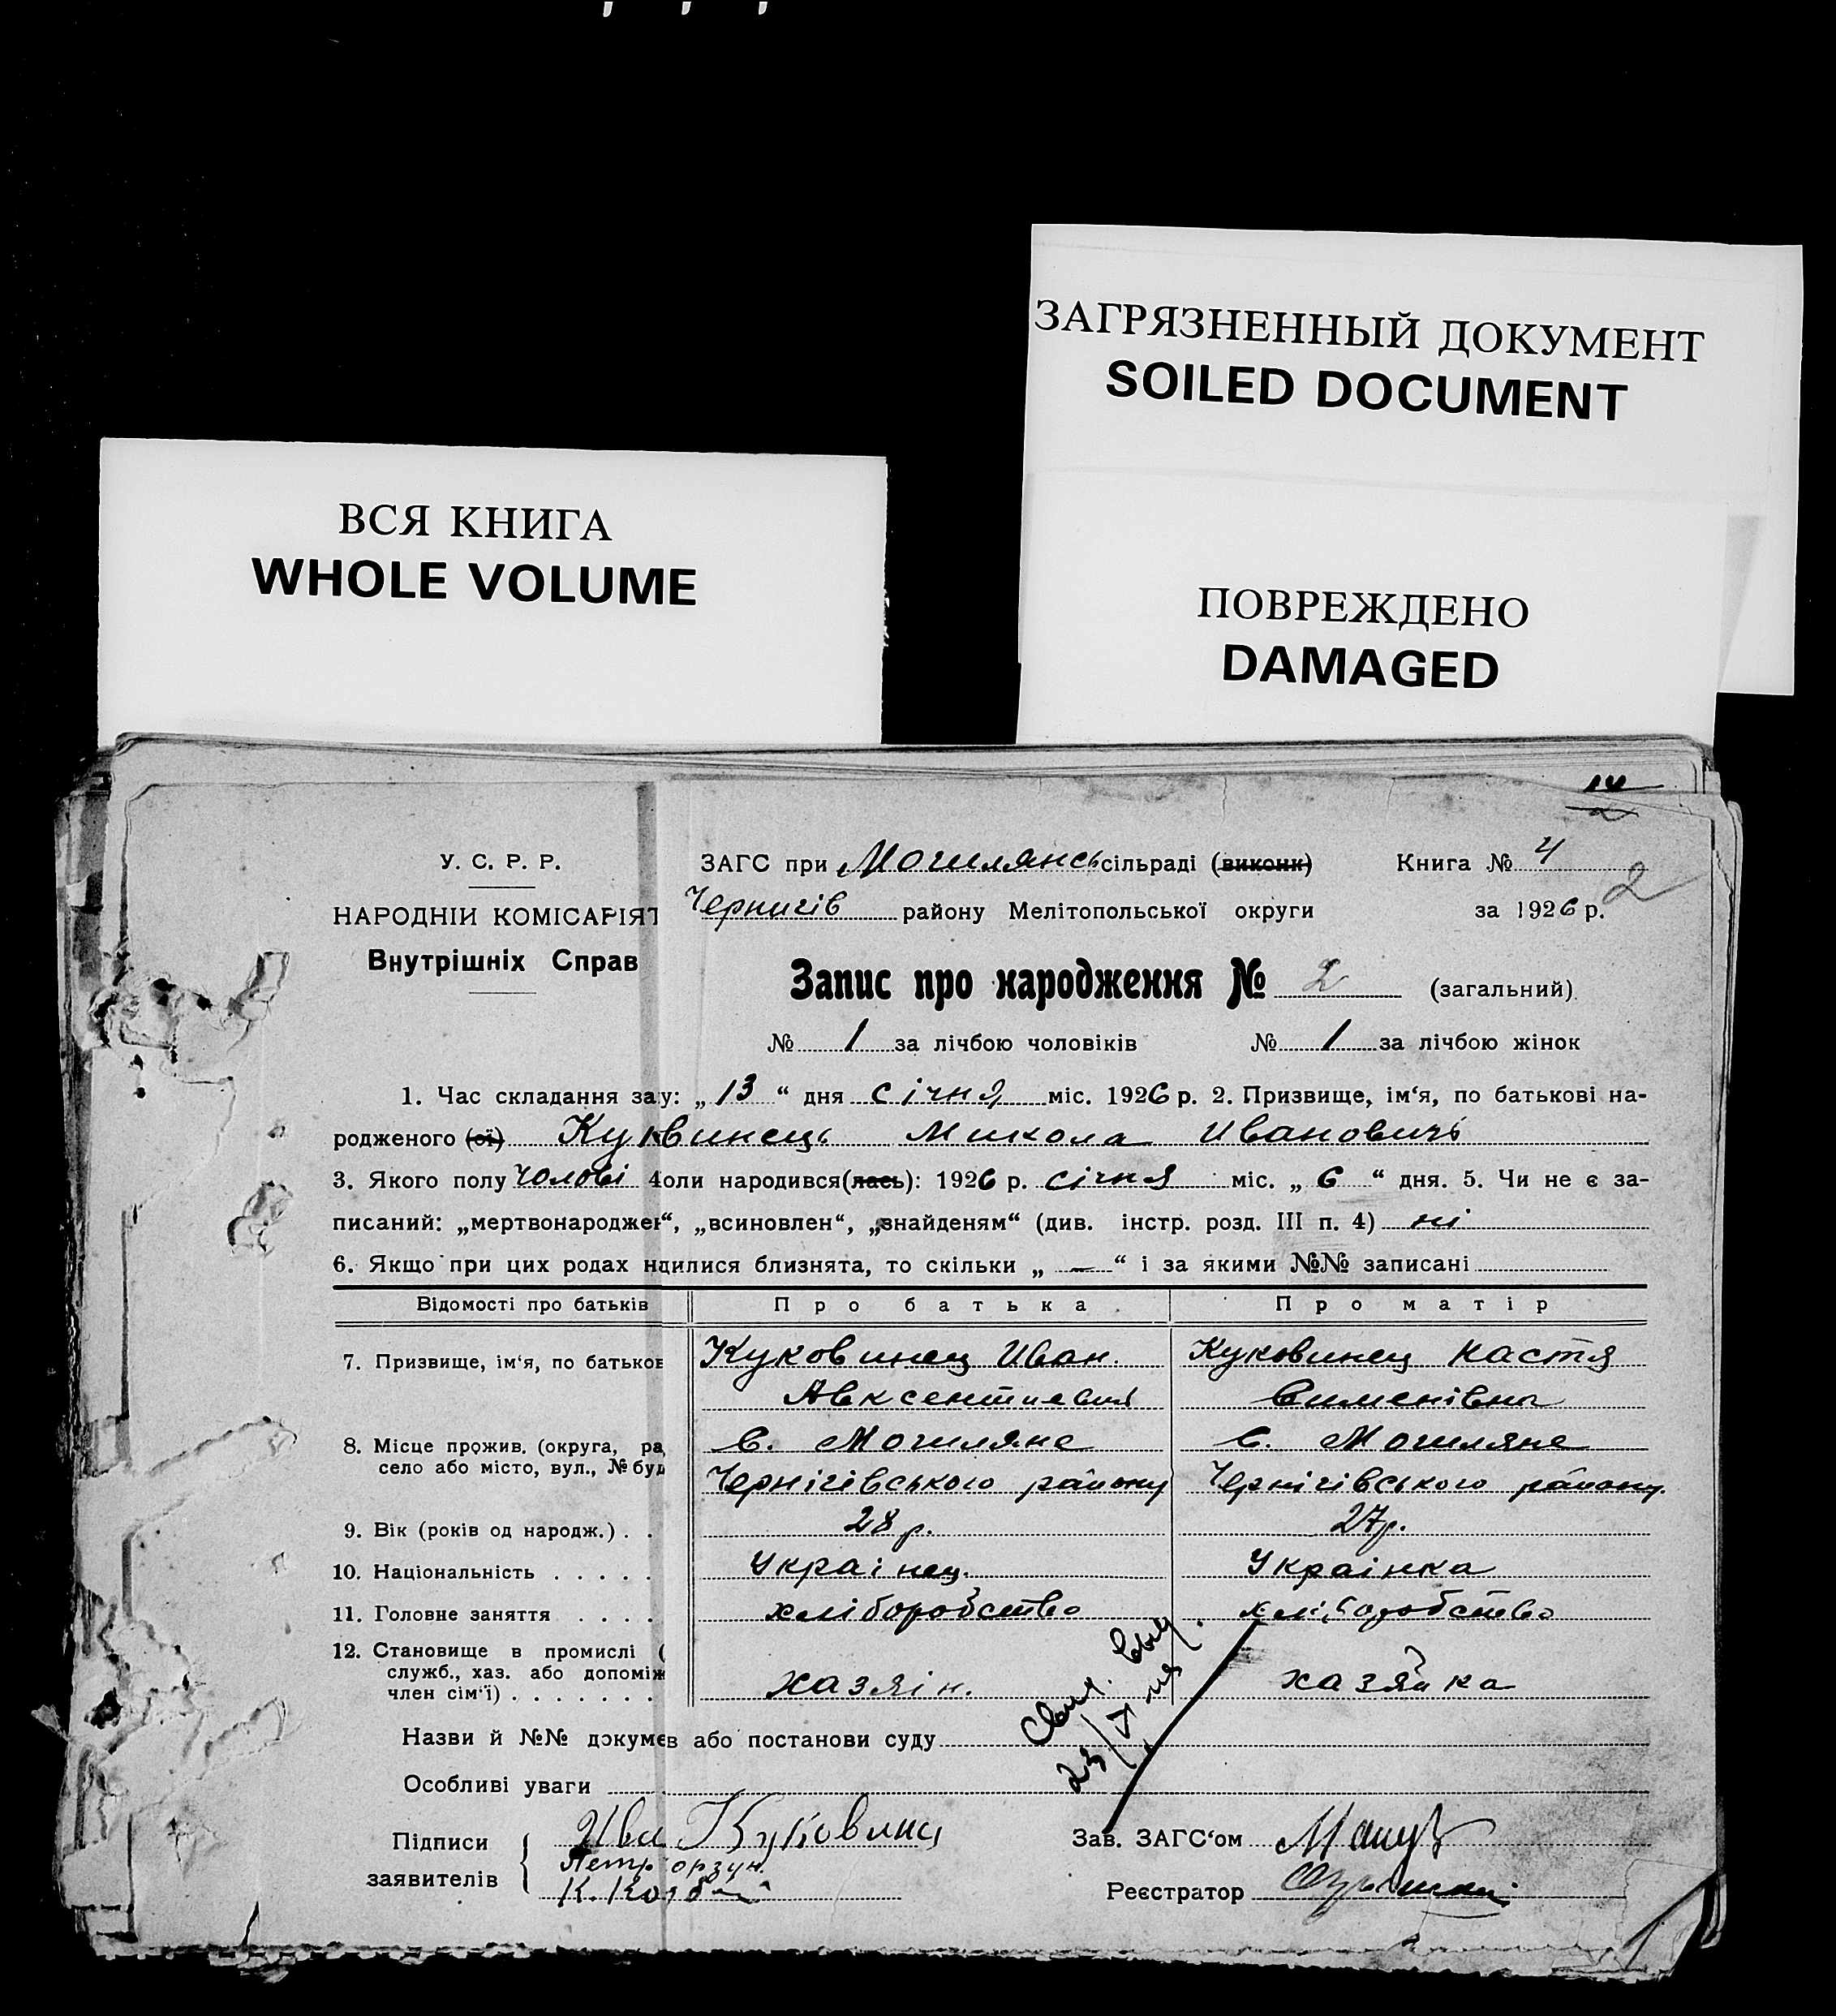 ЗАГРЯЗНЕННЫЙ ДОКУМЕНТ
SOILED DOCUMENT
ВСЯ КНИГА
WHOLE VOLUME
ПОВРЕЖДЕНО
DAMAGED
14
2
У. С. Р. Р.
НАРОДНІЙ КОМІСАРІЯТ
Внутрішніх Справ
ЗАГС при Могилянсь сільраді (виконк) Книга № 4
2
Чернигів району Мелітопольської округи за 1926 р.
Запис про народження № 2 (загальний)
№ 1 за лічбою чоловіків № 1 за лічбою жінок
1. Час складання за у: „ 13 “ дня січня міс. 1926 р. 2. Призвище, ім‘я, по батькові на-
родженого (ої) Ку винець Микола Ивановичь
3. Якого полу чолові 4 оли народився(лась): 1926 р. січня міс. „ 6 “ дня. 5. Чи не є за-
писаний: „мертвонароджен“, „всиновлен“, „знайденям“ (див. інстр. розд. III п. 4) ні
6. Якщо при цих родах н дилися близнята, то скільки „ — “ і за якими №№ записані
Відомості про батьків Про батька Про матір
7. Призвище, ім‘я, по батьков Куковинец Иван. Куковинец Настя
Авксентиевич Сименівна
8. Місце прожив. (округа, ра с. Могиляне с. Могиляне
село або місто, вул., № буд Чернігівського району Чернігівського району.
9. Вік (років од народж.) . . 28 р. 27 р.
10. Національність . . . . . Українец. Українка
11. Головне заняття . . . . хліборобство хліборобство
12. Становище в промислі (
служб., хаз. або допоміж хазяін. хазяйка
член сім‘ї) . . . . . . .
Назви й №№ докумен в або постанови суду
Особливі уваги
Підписи
заявителів
Ива Куковинц
Зав. ЗАГС‘ом
Реєстратор